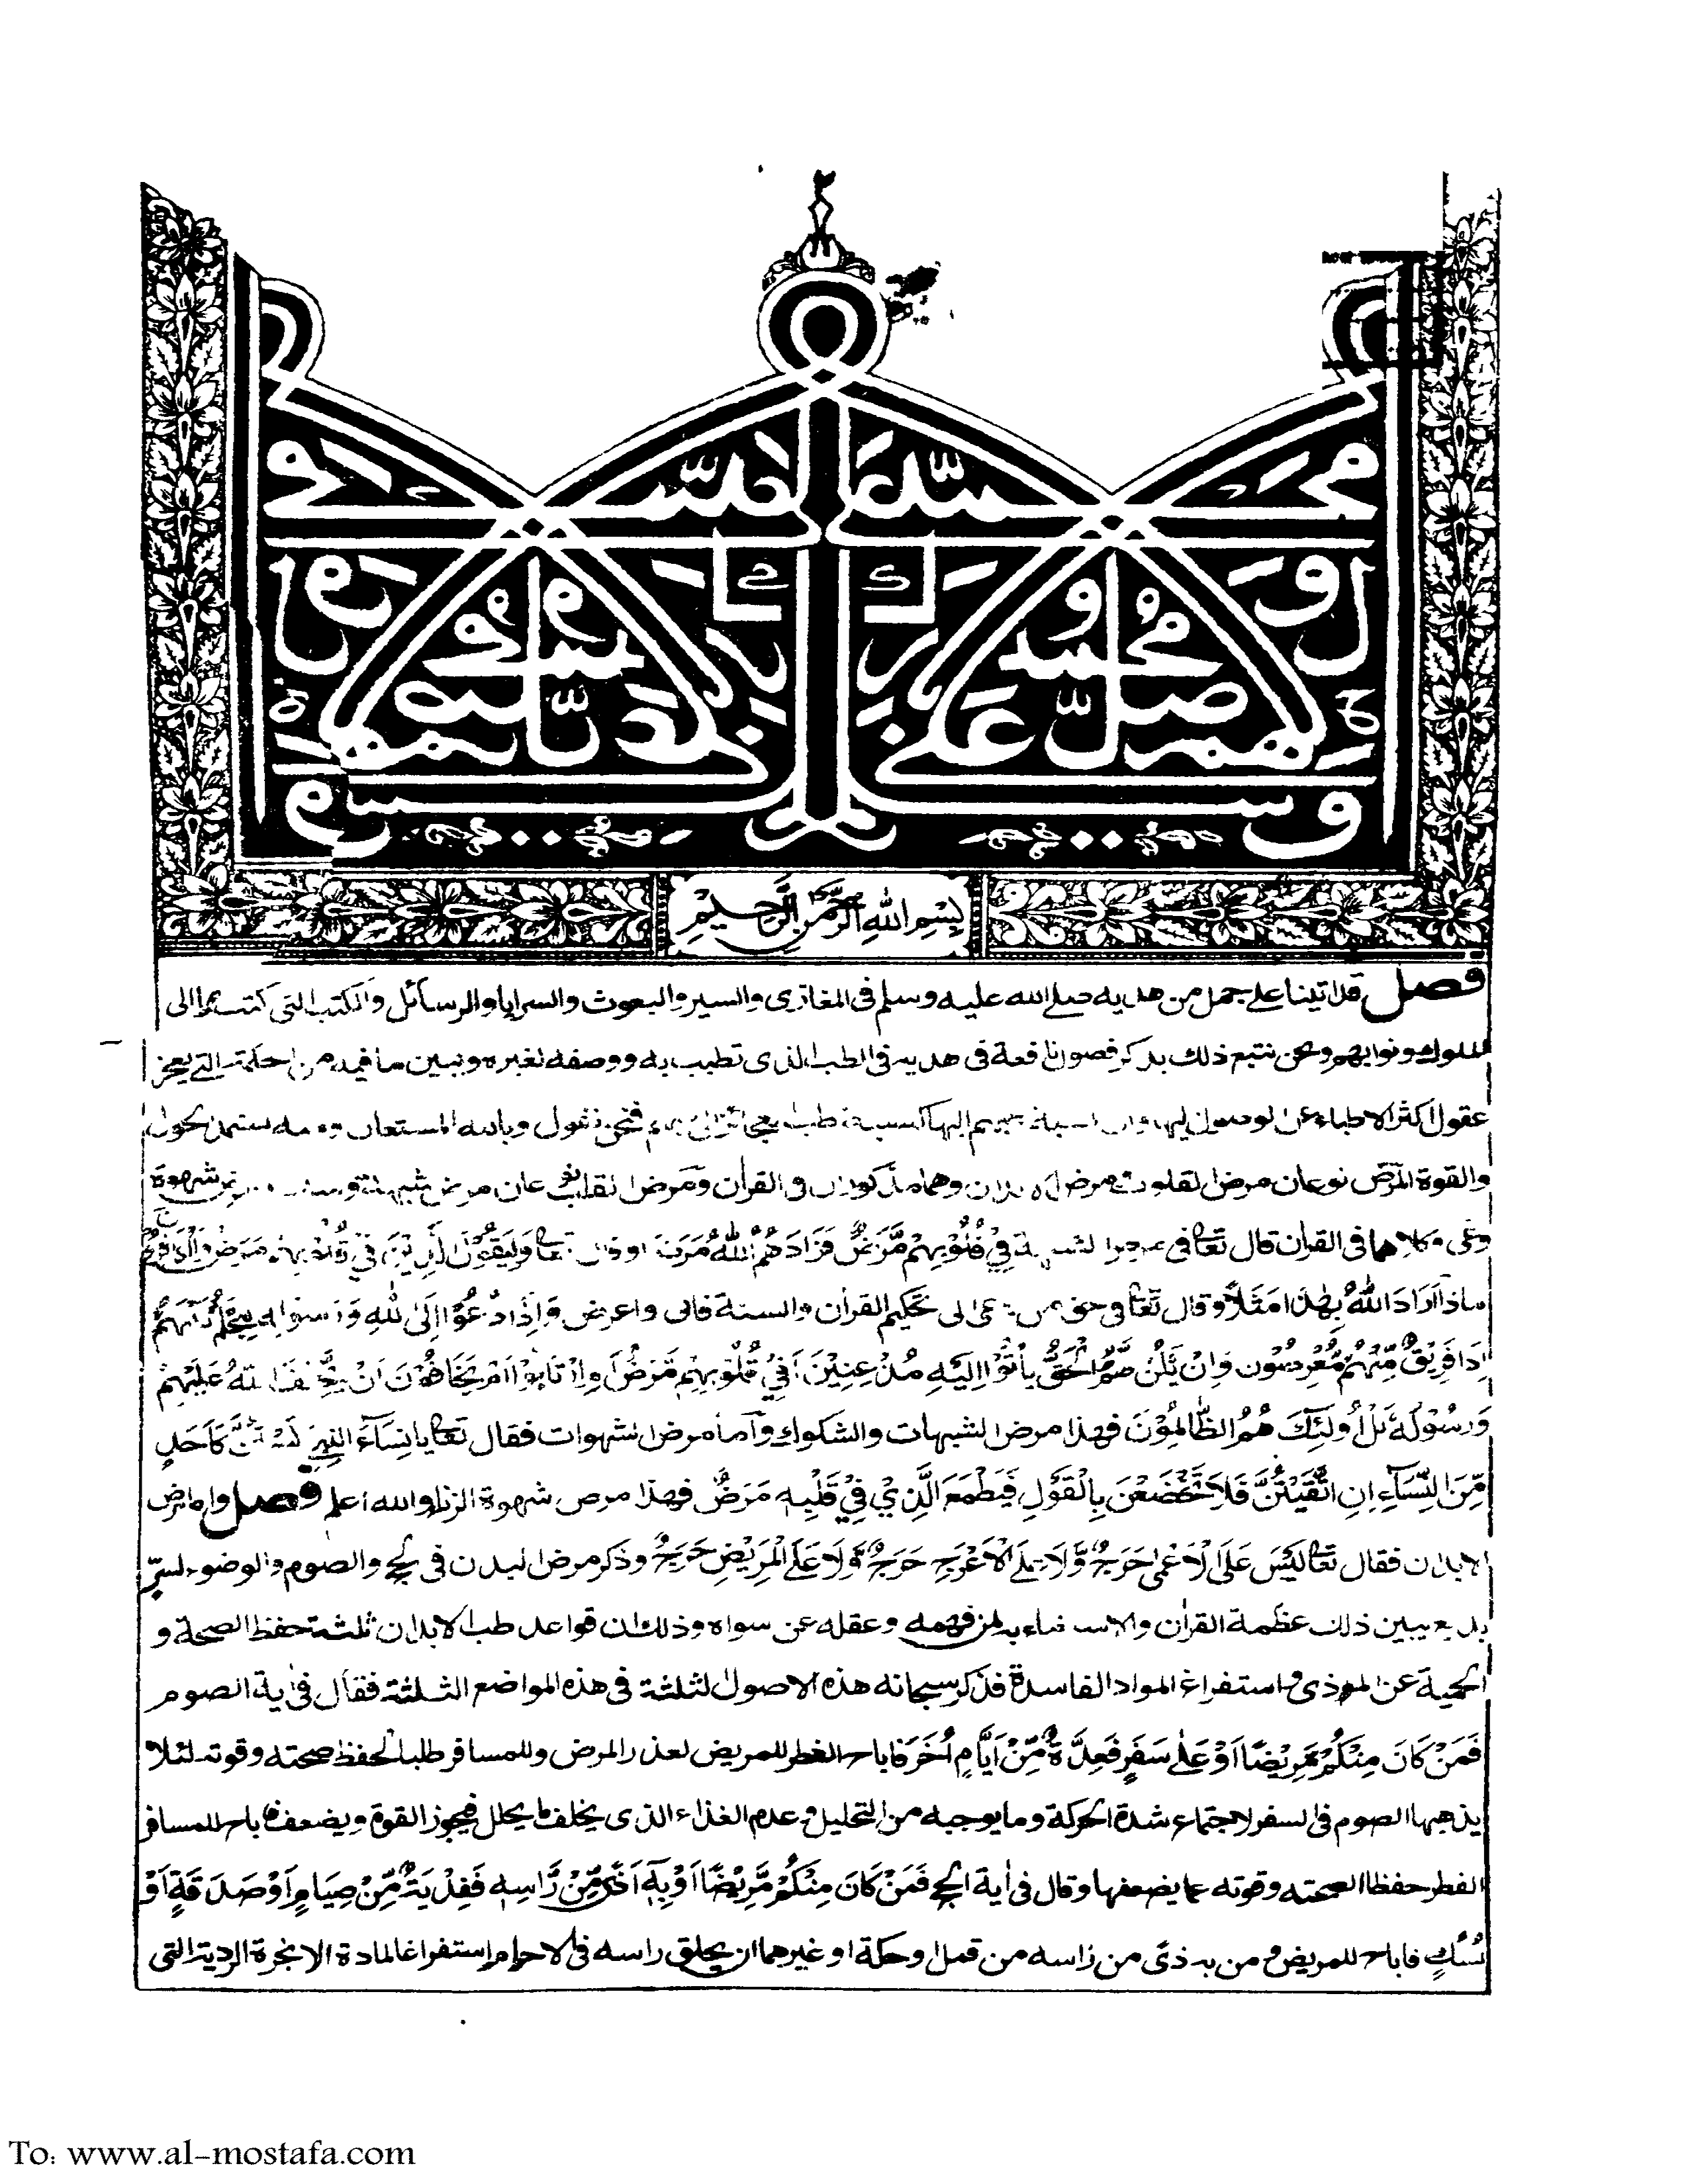 ٢
بِسْمِ اللهِ الرَّحْمٰنِ الرَّحِيْمِ
فصل قد اتينا على جمل من هديه صلے الله عليه وسلم فى المغازى والسير والبعوث والسرايا والرسائل والكتب التى كتب بها الى
الملوك ونوابهم ونحن نتبع ذلك بذكر فصول نافعة فى هديه فى الطب الذى تطبب به ووصفه لغيره ونبين ما فيه من الحكمة التى يعجز
عقول اكثر الاطباء عن الوصول اليها وان نسبة طبهم اليها كنسبة طب العجائز الى طبهم فنحن نقول وبالله المستعان ومنه نستمد الحول
والقوة المرض نوعان مرض القلوب ومرض الابدان وهما مذكوران فى القرآن ومرض القلب نوعان مرض شبهة ومرض شهوة
وغى وكلاهما فى القرآن قال تعالى فى مرض الشبهة فِيْ قُلُوْبِهِمْ مَّرَضٌ فَزَادَهُمُ اللهُ مَرَضًا وقال تعالى وَلِيَقُوْلَ الَّذِيْنَ فِيْ قُلُوْبِهِمْ مَرَضٌ وَّالْكٰفِرُوْنَ
مَاذَا اَرَادَ اللهُ بِهٰذَا مَثَلًا وقال تعالى فى حق من دعى الى تحكيم القرآن والسنة فابى واعرض وَاِذَا دُعُوْا اِلَى اللهِ وَرَسُوْلِهٖ لِيَحْكُمَ بَيْنَهُمْ
اِذَا فَرِيْقٌ مِّنْهُمْ مُّعْرِضُوْنَ وَاِنْ يَّكُنْ لَّهُمُ الْحَقُّ يَأْتُوْا اِلَيْهِ مُذْعِنِيْنَ اَفِيْ قُلُوْبِهِمْ مَّرَضٌ اَمِ ارْتَابُوْا اَمْ يَخَافُوْنَ اَنْ يَّحِيْفَ اللهُ عَلَيْهِمْ
وَرَسُوْلُهٗ بَلْ اُولٰئِكَ هُمُ الظَّالِمُوْنَ فهذا مرض الشبهات والشكوك واما مرض الشهوات فقال تعالى يَا نِسَآءَ النَّبِيِّ لَسْتُنَّ كَاَحَدٍ
مِّنَ النِّسَآءِ اِنِ اتَّقَيْتُنَّ فَلَا تَخْضَعْنَ بِالْقَوْلِ فَيَطْمَعَ الَّذِيْ فِيْ قَلْبِهٖ مَرَضٌ فهذا مرض شهوة الزنا والله اعلم فصل واما مرض
الابدان فقال تعالى لَيْسَ عَلَى الْاَعْمٰى حَرَجٌ وَّلَا عَلَى الْاَعْرَجِ حَرَجٌ وَّلَا عَلَى الْمَرِيْضِ حَرَجٌ وذكر مرض البدن فى الحج والصوم والوضوء لسرّ
بديع يبين ذلك عظمة القرآن والاستغناء به لمن فهمه وعقله عن سواه وذلك ان قواعد طب الابدان ثلثة حفظ الصحة و
الحمية عن الموذى واستفراغ المواد الفاسدة فذكر سبحانه هذه الاصول الثلثة فى هذه المواضع الثلثة فقال فى آية الصوم
فَمَنْ كَانَ مِنْكُمْ مَّرِيْضًا اَوْ عَلٰى سَفَرٍ فَعِدَّةٌ مِّنْ اَيَّامٍ اُخَرَ فاباح الفطر للمريض لعذر المرض وللمسافر طلبا لحفظ صحته وقوته لئلا
يذهبها الصوم فى السفر لاجتماع شدة الحركة وما يوجبه من التحليل وعدم الغذاء الذى يخلف ما يحلل فيجوز القوة ويضعفه فاباح للمسافر
الفطر حفظا لصحته وقوته عما يضعفها وقال فى آية الحج فَمَنْ كَانَ مِنْكُمْ مَّرِيْضًا اَوْ بِهٖ اَذًى مِّنْ رَّاْسِهٖ فَفِدْيَةٌ مِّنْ صِيَامٍ اَوْ صَدَقَةٍ اَوْ
نُسُكٍ فاباح للمريض ومن به اذى من راسه من قمل او حكة او غيرهما ان يحلق راسه فى الاحرام استفراغا لمادة الابخرة الردية التى
To: www.al-mostafa.com